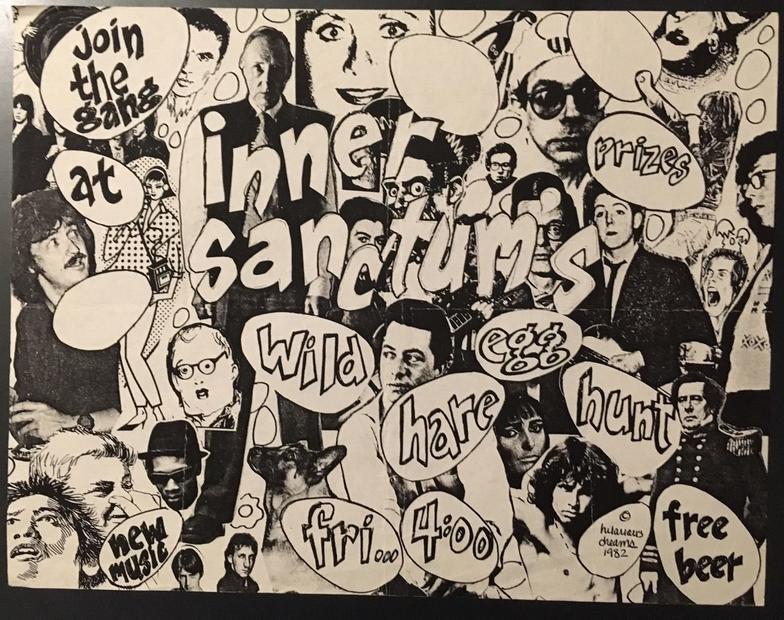 join
the
gang
at
inner
sanctum's
prizes
wild
egg
hare
hunt
new
music
fri...
4:00
©
hilarious
dreams
1982
free
beer